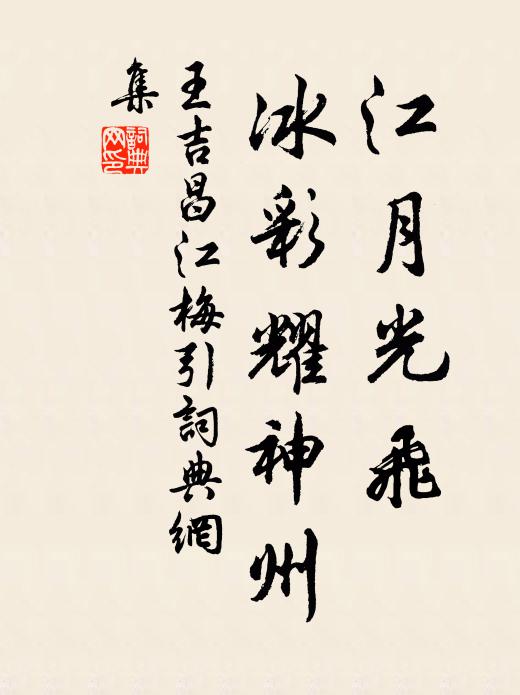 江月光飛
冰彩耀神州
王吉昌江梅引詞典網
集
詞典網印